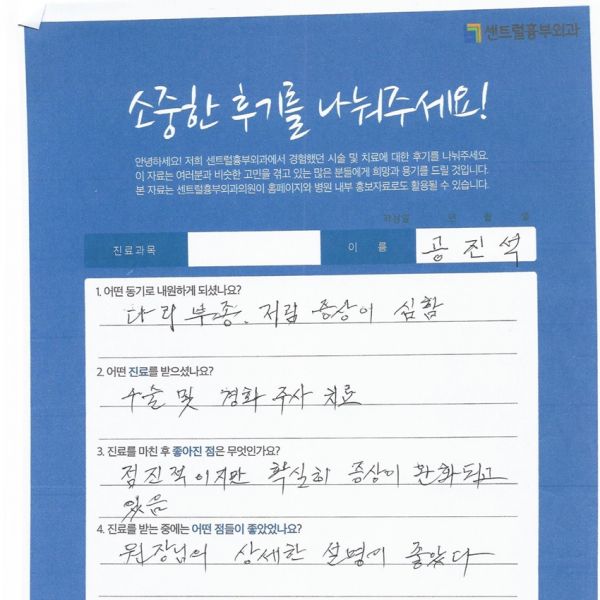 센트럴흉부외과
소중한 후기를 나눠주세요!
안녕하세요! 저희 센트럴흉부외과에서 경험했던 시술 및 치료에 대한 후기를 나눠주세요.
이 자료는 여러분과 비슷한 고민을 겪고 있는 많은 분들에게 희망과 용기를 드릴 것입니다.
본 자료는 센트럴흉부외과의원이 홈페이지와 병원 내부 홍보자료로도 활용될 수 있습니다.
작성일 년 월 일
진료과목 이 름 공진석
1. 어떤 동기로 내원하게 되셨나요?
다리 부종, 저림 증상이 심함
2. 어떤 진료를 받으셨나요?
수술 및 경화 주사 치료
3. 진료를 마친 후 좋아진 점은 무엇인가요?
점진적이지만 확실히 증상이 완화되고
있음
4. 진료를 받는 중에는 어떤 점들이 좋았었나요?
원장님의 상세한 설명이 좋았다